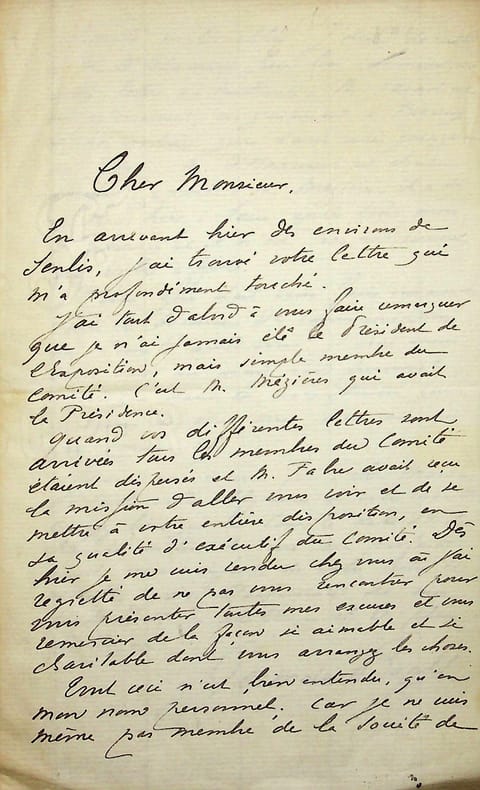 Cher Monsieur,
En arrivant hier des environs de
Senlis, j'ai trouvé votre lettre qui
m'a profondément touché.
J'ai tout d'abord à vous faire remarquer
que je n'ai jamais été le Président de
l'Exposition, mais simple membre du
Comité. C'est M. Mézières qui avait
la Présidence.
Quand vos différentes lettres sont
arrivées tous les membres du Comité
étaient dispersés et M. Fabre avait reçu
la mission d'aller vous voir et de se
mettre à votre entière disposition, en
sa qualité d'exécutif du Comité. Dès
hier je me suis rendu chez vous où j'ai
regretté de ne pas vous rencontrer pour
vous présenter toutes mes excuses et vous
remercier de la façon si aimable et si
charitable dont vous arrangez les choses.
Tout ceci n'est, bien entendu, qu'en
mon nom personnel. Car je ne suis
même pas membre de la Société de